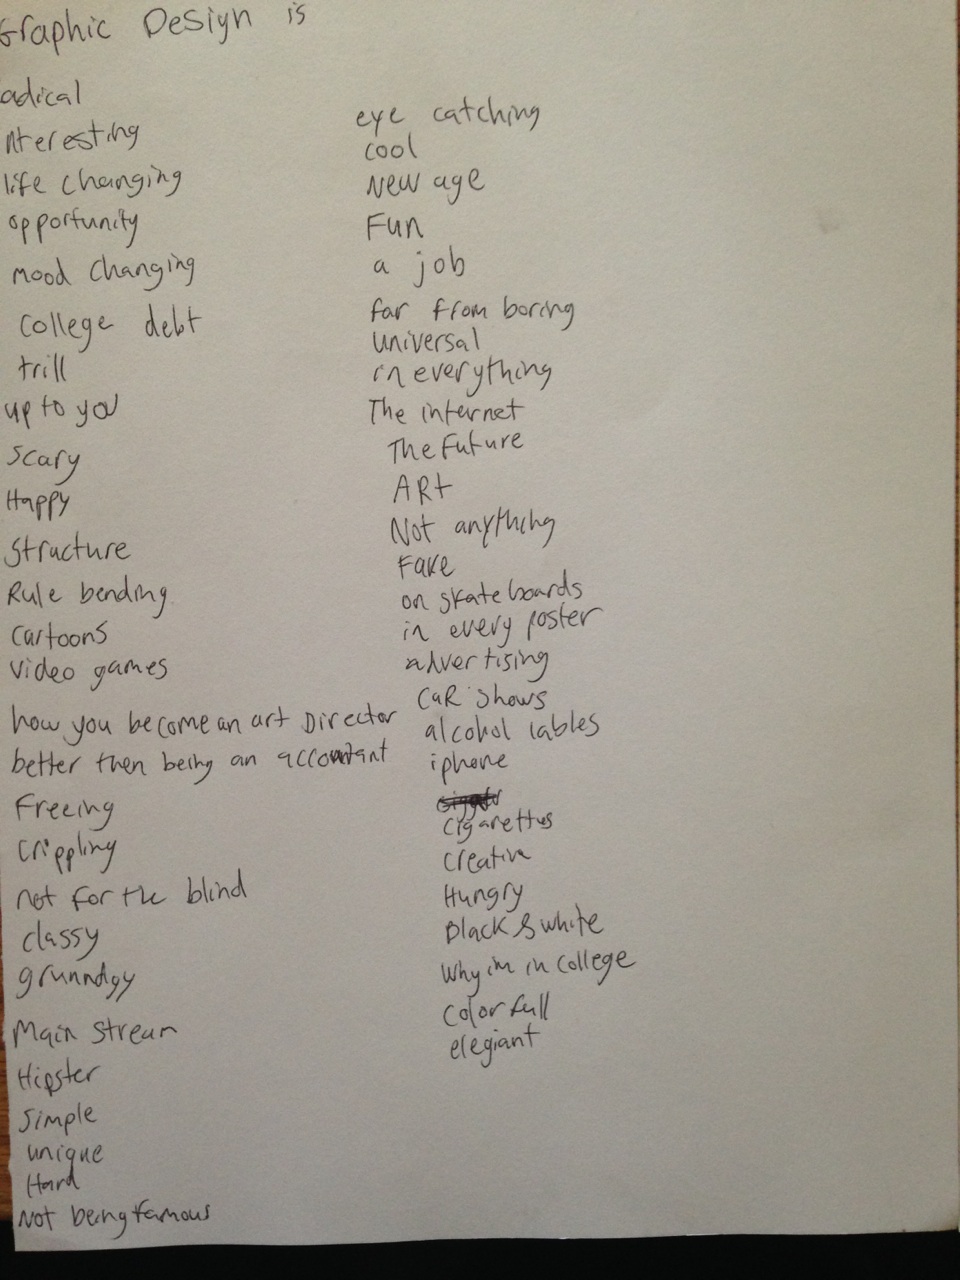 Graphic Design is
adical
nteresting
life changing
opportunity
mood changing
college debt
trill
up to you
Scary
Happy
Structure
Rule bending
Cartoons
Video games
how you become an art Director
better then being an accountant
Freeing
Crippling
not for the blind
classy
grunndgy
Main Stream
Hipster
Simple
unique
Hard
Not being famous
eye catching
cool
New age
Fun
a job
far from boring
universal
in everything
The internet
The Future
ARt
Not anything
Fake
on skateboards
in every poster
advertising
CaR Shows
alcohol lables
iphone
cigarettes
Creative
Hungry
Black & white
Why im in college
Color full
elegiant